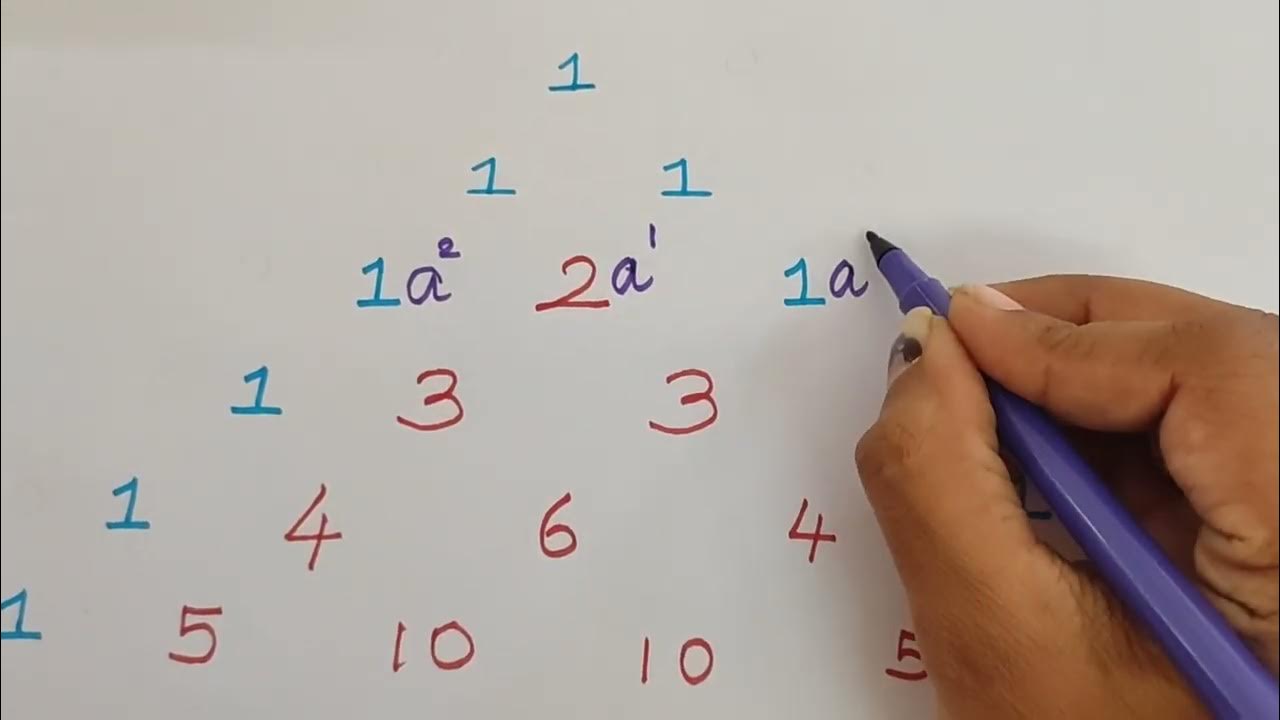 1
1 1
1a² 2a¹ 1a
1 3 3
1 4 6 4
1 5 10 10 5